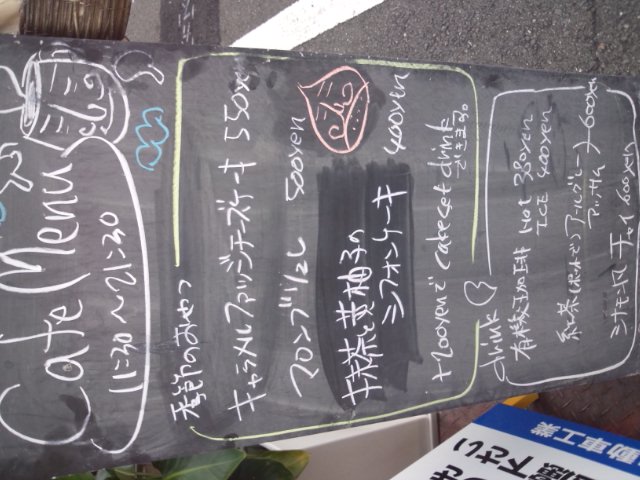 Cafe Menu
11:30〜21:30
季節のおやつ
キャラメルファッジチーズケーキ 550yen
マロンブリュレ 500yen
抹茶と黄柚子の
シフォンケーキ 400yen
+200yenで cakeset drink
できます。
drink
有機珈琲 Hot 380yen
ICE 400yen
紅茶(ポット) アールグレー
アッサム 600yen
シナモンミルクティ 600yen
動車工業
慮下さい